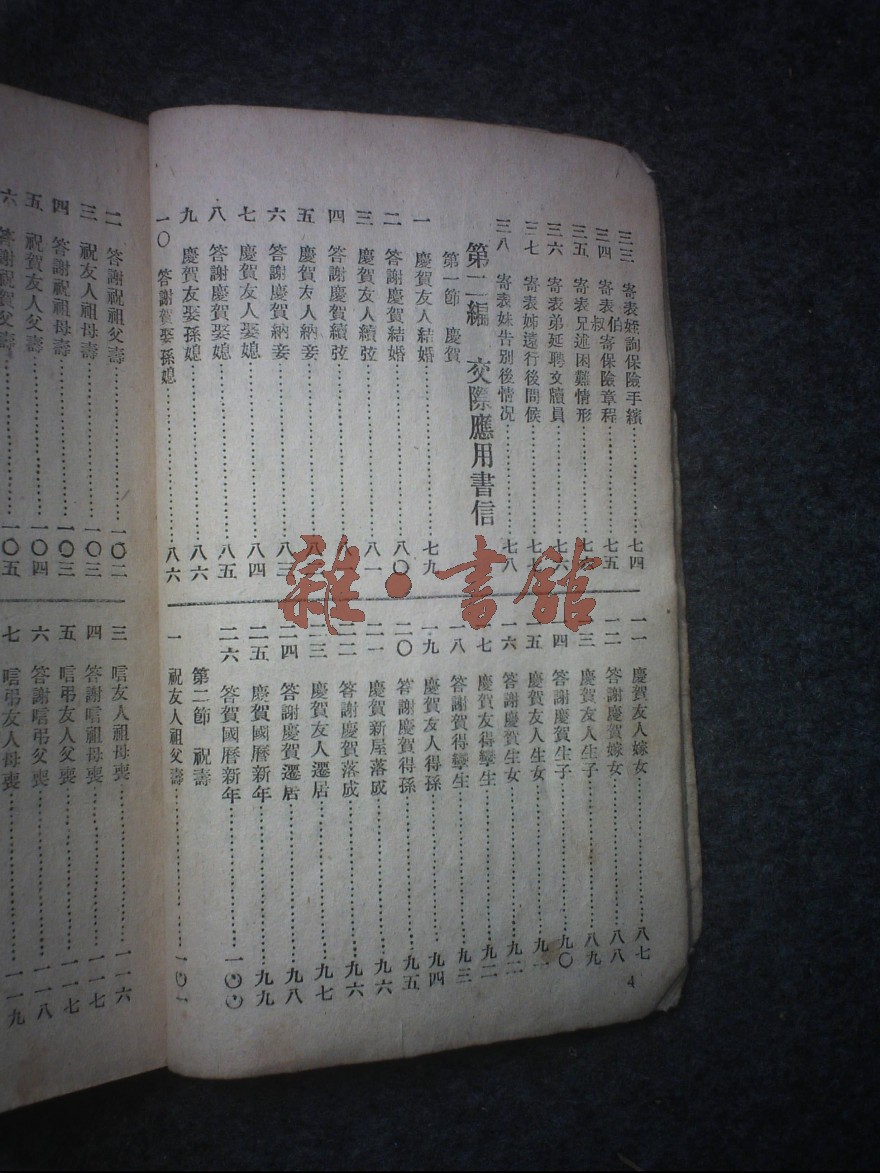 三三 寄表姪詢保險手續……七四
三四 寄表伯叔寄保險章程……七五
三五 寄表兄述困難情形
三六 寄表弟延聘文牘員……七六
三七 寄表姊遠行後問候
三八 寄表妹告別後情况……七八
第二編 交際應用書信
第一節 慶賀
一 慶賀友人結婚……七九
二 答謝慶賀結婚……八〇
三 慶賀友人續弦……八一
四 答謝慶賀續弦
五 慶賀友人納妾
六 答謝慶賀納妾……八三
七 慶賀友人娶媳……八四
八 答謝慶賀娶媳……八五
九 慶賀友娶孫媳……八六
一〇 答謝賀娶孫媳……八六
一一 慶賀友人嫁女……八七
一二 答謝慶賀嫁女……八八
一三 慶賀友人生子……八九
一四 答謝慶賀生子……九〇
一五 慶賀友人生女……九一
一六 答謝慶賀生女……九二
一七 慶賀友得孿生……九二
一八 答謝賀得孿生……九三
一九 慶賀友人得孫……九四
二〇 答謝慶賀得孫……九五
二一 慶賀新屋落成……九六
二二 答謝慶賀落成……九六
二三 慶賀友人遷居……九七
二四 答謝慶賀遷居……九八
二五 慶賀國曆新年……九九
二六 答賀國曆新年……一〇〇
第二節 祝壽
一 祝友人祖父壽……一〇一
4
二 答謝祝祖父壽……一〇二
三 祝友人祖母壽……一〇三
四 答謝祝祖母壽……一〇三
五 祝賀友人父壽……一〇四
六 答謝祝賀父壽……一〇五
三 唁友人祖母喪……一一六
四 答謝唁祖母喪……一一七
五 唁弔友人父喪……一一七
六 答謝唁弔父喪……一一八
七 唁弔友人母喪……一一九
雜·書館